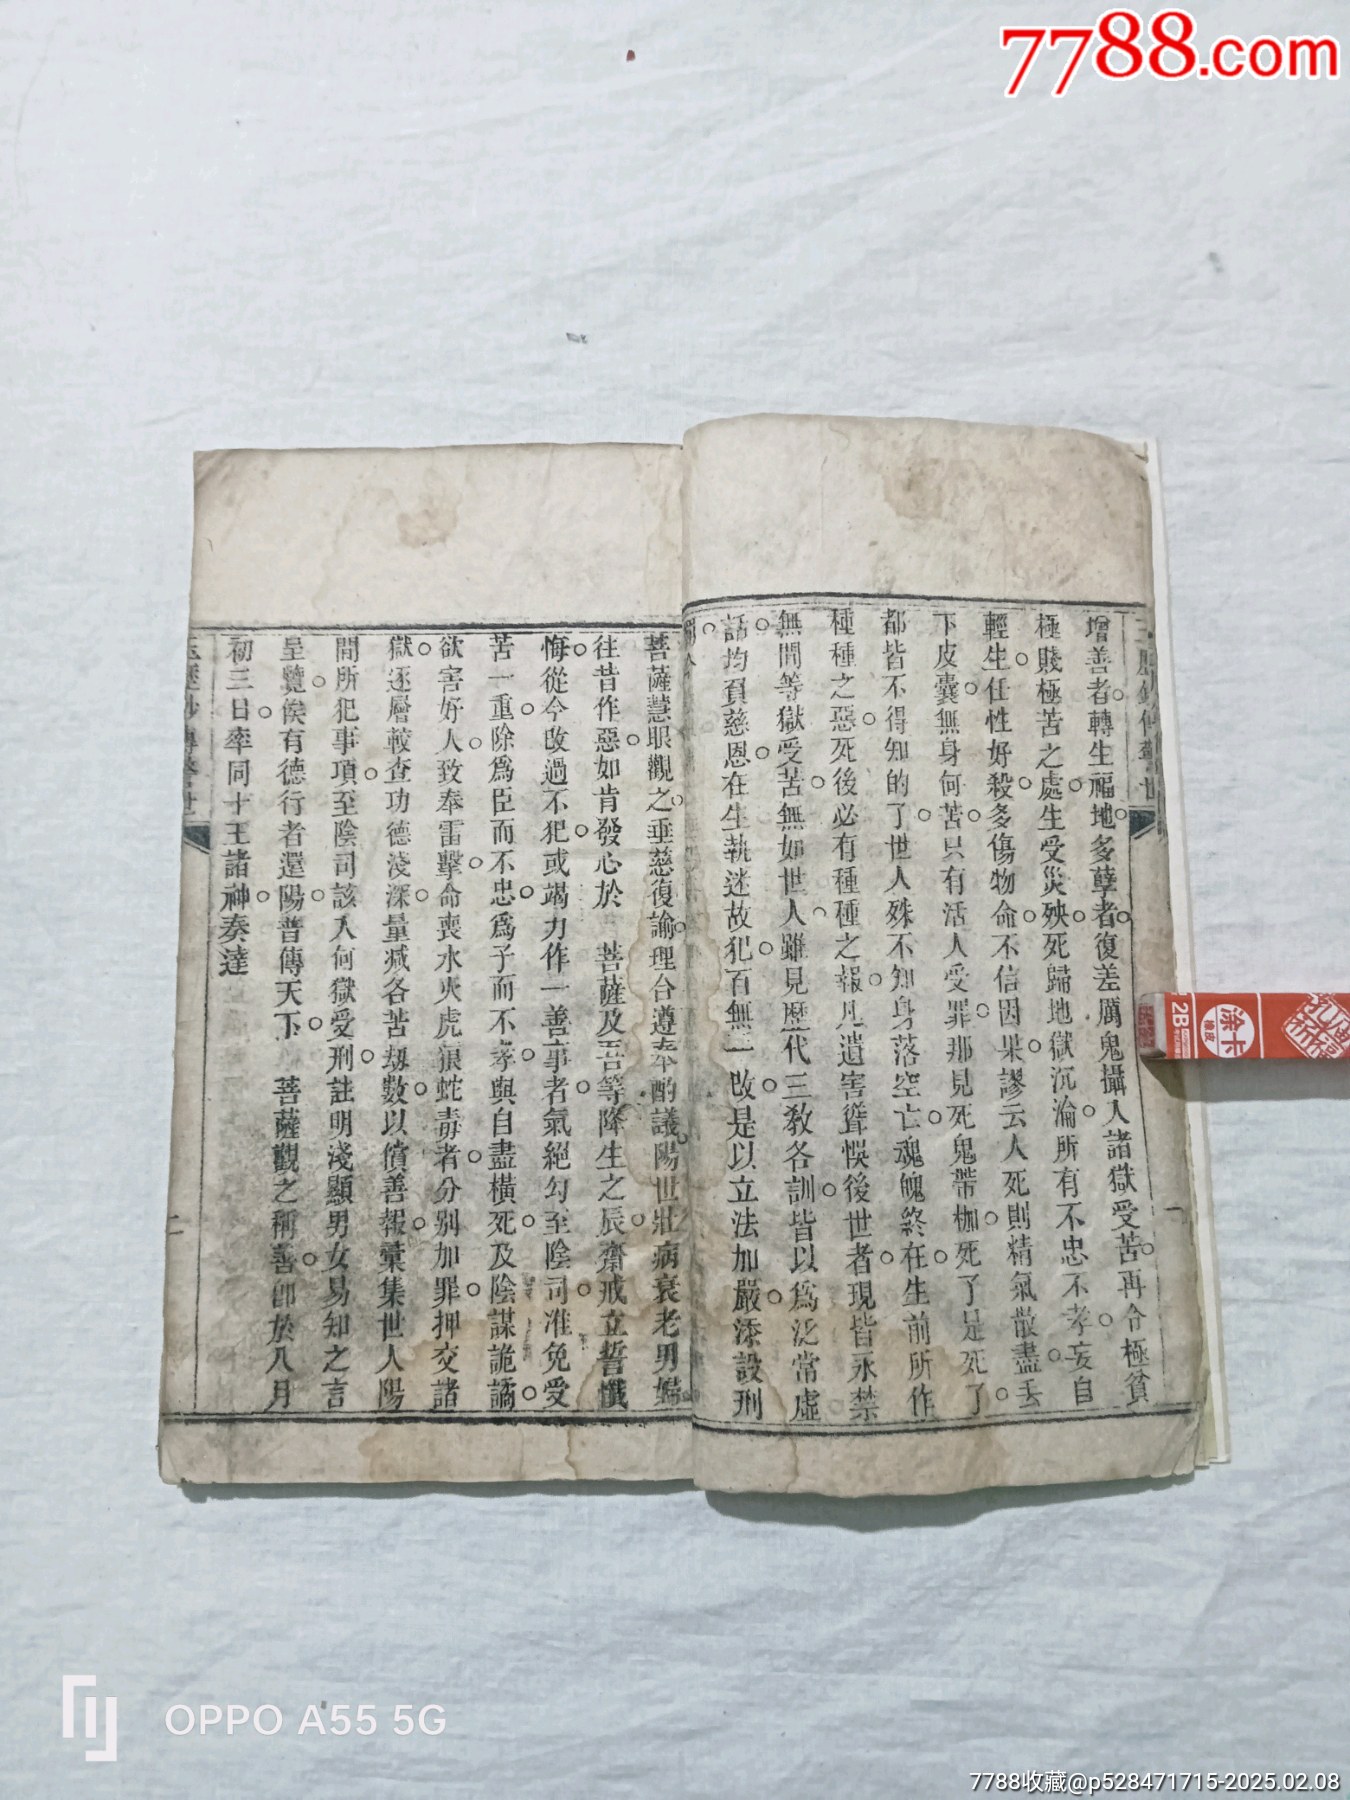 7788.com
增善者轉生福地多孽者復差厲鬼攝入諸獄受苦再令極貧
極賤極苦之處生受災殃死歸地獄沉淪所有不忠不孝妄自
輕生任性好殺多傷物命不信因果謬云人死則精氣散盡丟
下皮囊無身何苦只有活人受罪那見死鬼帶枷死了是死了
都皆不得知的了世人殊不知身落空亡魂魄終在生前所作
種種之惡死後必有種種之報凡遺害聳悞後世者現皆永禁
無間等獄受苦無如世人雖見歷代三教各訓皆以為泛常虛
話均負慈恩在生執迷故犯百無一改是以立法加嚴添設刑
菩薩慧眼觀之垂慈復諭理台遵奉酌議陽世壯病衰老男婦
往昔作惡如肯發心於 菩薩及吾等降生之辰齋戒立誓懺
悔從今改過不犯或竭力作一善事者氣絕勾至陰司准免受
苦一重除為臣而不忠為子而不孝與自盡橫死及陰謀詭譎
欲害好人致奉雷擊命喪水火虎狼蛇毒者分別加罪押交諸
獄逐層較查功德淺深量減各苦劫數以償善報彙集世人陽
間所犯事項至陰司該入何獄受刑註明淺顯男女易知之言
呈覽俟有德行者還陽普傳天下 菩薩觀之稱善即於八月
初三日率同十王諸神奏達
二
一
2B
涂卡
橡皮
OPPO A55 5G
7788收藏@p528471715-2025.02.08